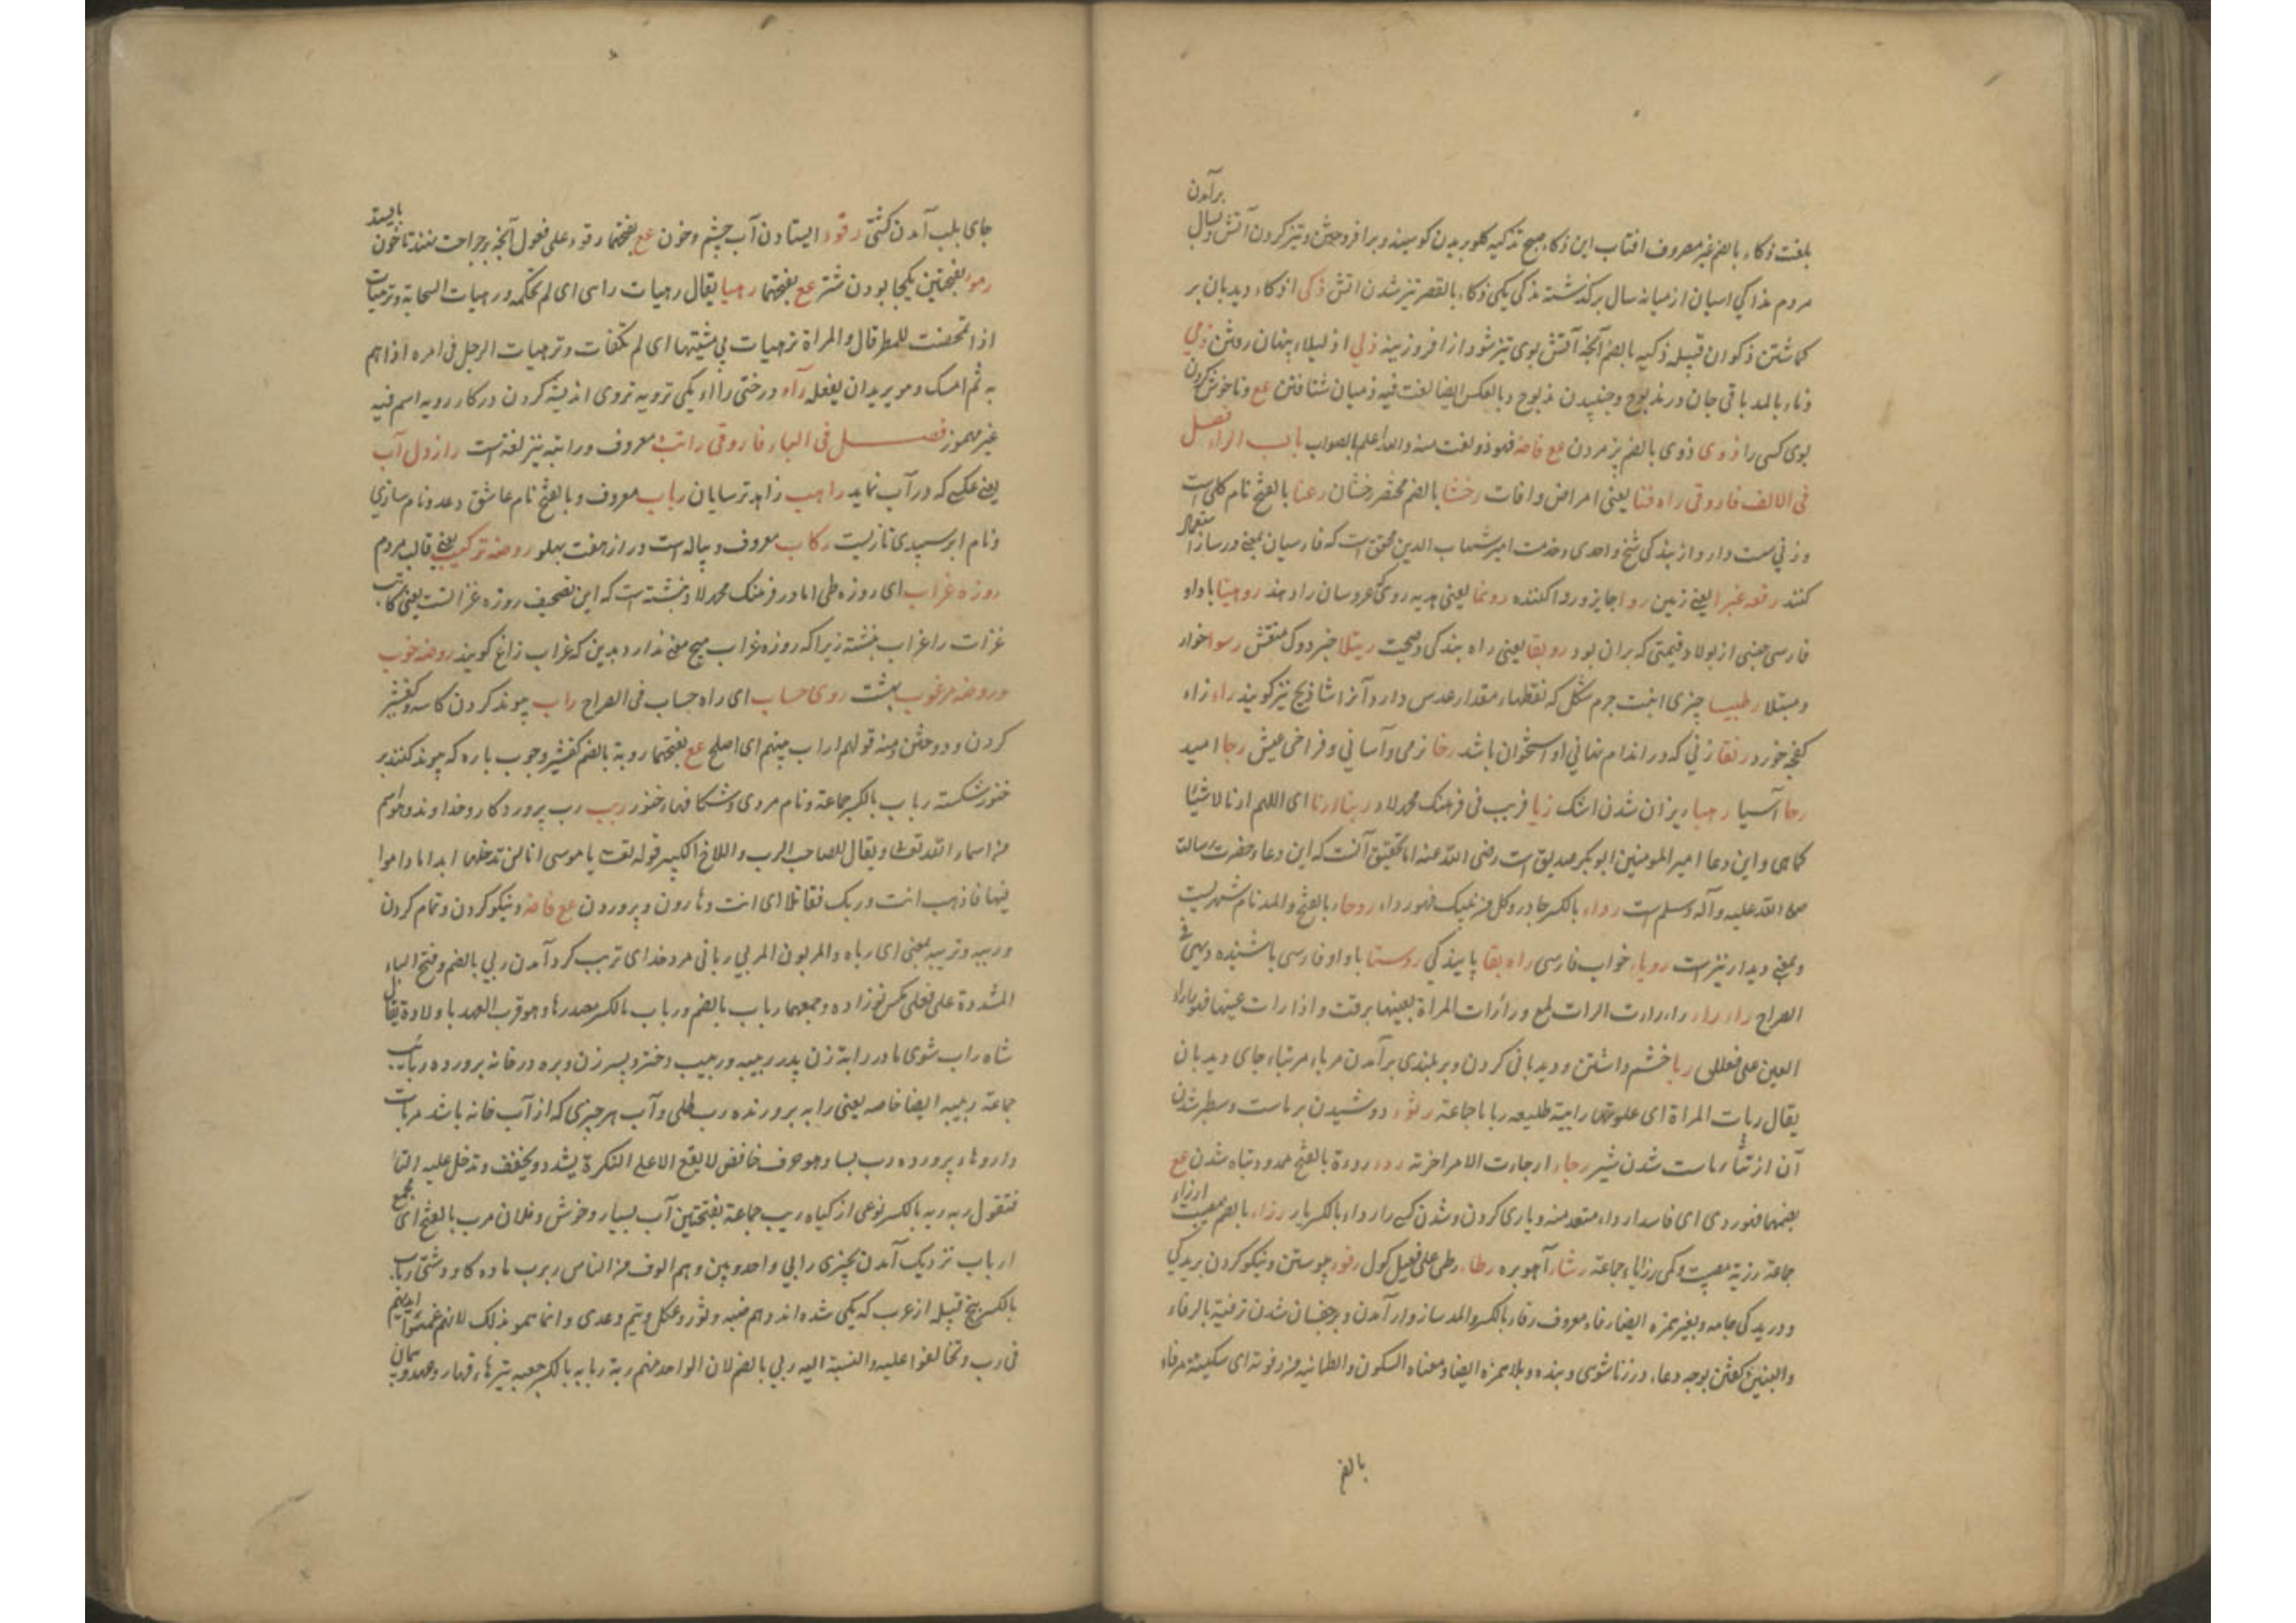 برآمدن
بلغت ذکاء بالضم غیر مصروف افتاب ابن ذکاء صبح تذکیه کلو بریدن کوسپند و برافروختن و تیز کردن آتش و بسال
مردم مذاکی اسپان از میانه سال برکذشته مذکی یکی ذکاء بالقصر تیز شدن اتش ذکی اذکاء دیدبان بر
کماشتن ذکوان قبیله ذکیه بالضم آنچه آتش بوی تیز شود از افروزینه ذلی اذلیلاء پنهان رفتن ذمی
ذماء بالمد باقی جان در مذبوح و جنبیدن مذبوح و بالعکس ایضا لغت فیه ذمیان شتافتن عع و ناخوش کردن
بوی کسی را ذوی ذوی بالضم پژمردن عع فاضه فهو ذو لغت منه والله اعلم بالصواب باب الراء فصل
فی الالف فاروقی راه فنا یعنی امراض وافات رخشا بالضم مختصر رخشان رعنا بالفتح نام کلی است
وزنی مست دارد از بندکی شیخ واحدی و خدمت امیر شهاب الدین محقق است که فارسیان بمعنی ورساز استعمال
کنند رقعه غبرا یعنی زمین روا جایز و روا کننده رونما یعنی هدیه روی که عروسان را دهند روهینا با واو
فارسی جنسی از پولاد قیمتی که بران بود رو بقا یعنی راه بندکی و صحیت ریتلا جز دوک منقش رسوا خوار
و مبتلا رطبیسا چیزی است جرم شکل که نقطهاء مقدار عدس دارد آنرا شاذنج نیز کویند راء زاء
کفچه خورد رتقا زنی که در اندام نهانی او استخوان باشد رخا نرمی و آسانی و فراخی عیش رجا امید
رحا آسیا رهبا ریزان شدن اشک زیا فریب فی فرهنک محمد لاد ربنا ارنا ای اللهم ارنا الاشیا
کماهی و این دعا امیر المومنین ابوبکر صدیق است رضی الله عنه اما تحقیق آنست که این دعا حضرت رسالت
صلی الله علیه وآله وسلم است رداء بالکسر چادر و کل رداء روحاء بالفتح والمد نام شهریست
و بمعنی دیدار نیز است رویاء خواب فارسی راه بقا پایندکی روستا با واو فارسی باشنده دیهی فی
الصراح راء راء رارات المراة بعینها برقت واذا رات عینها فهو راراء
العین علی فعللی ربا خشم داشتن و دیدبانی کردن و بر بلندی برآمدن مرباء مرتباء جای دیدبان
یقال ربات المراة ای علوتها رابیئة طلیعه ربایا جماعة رثوء دوشیدن بر ماست وسطبر شدن
آن ارتثاء ماست شدن شیر رجاء ارجاءت الامر اخرته ردء رداءة بالفتح ممدود تباه شدن عع
بضمها فهو ردی ای فاسد ارداء متعد منه و یاری کردن و شدن کسی را رداء بالکسر یار رزاء بالضم مصیبت ارزاء
جماعة رزیة مصیبت و کمی رزایا جماعة رشاء آهو بره رطاء رطی علی فعیل کول رفوء پیوستن و نیکو کردن بریدکی
و دریدکی جامه و بغیر همزه ایضا رفاء معروف رفاء بالکسر والمد سازوار آمدن و چسپان شدن ترفیة بالرفاء
والبنین کفتن بوجه دعاء در زناشوی و بنده و بلا همزه ایضا و معناه السکون والطمانینه من رفوته ای سکینته مرفاء
بالفم
جای بلب آمدن کشتی رقوء ایستادن آب چشم و خون عع بفتحهما رقوء علی فعول آنچه بر جراحت نهند تا خون بایستد
رموء بفتحتین یکجا بودن شتر عع بفتحهما رهیا یقال رهیات رای ای لم تحکمه و رهیات السحابة و ترهیات
اذا تمخضت للمطر قال والمراة ترهیات فی مشیتها ای لم تکفات و ترهیات الرجل فی امره اذا هم
به ثم امسک و هو یرید ان یفعله رآء درختی راءاة یکی ترویه تروی اندیشه کردن در کار رویه اسم فیه
غیر مهموز فصل فی الباء فاروقی راتب معروف و راتبه نیز لغتست راز دل آب
یعنی عکسی که در آب نماید راهب زاهد ترسایان رباب معروف و بالفتح نام عاشق دعد و نام سازی
و نام ابر سپیدی تازیست رکاب معروف و پیاله است دراز هفت پهلو روضه ترکیب یعنی قالب مردم
روزه غراب ای روزه طی اما در فرهنک محمد لاد نبشته است که این تصحیف روزه عزاست یعنی کاتب
عزات را غراب نبشته زیرا که روزه غراب هیچ معنی ندارد بدین که غراب زاغ کویند روضه خوب
و روضه مرغوب بهشت روی حساب ای راه حساب فی الصراح راب پیوند کردن کاسه و کفشیر
کردن و دوختن ومنه قولهم اراب بینهم ای اصلح عع بفتحهما روبة بالضم کفشیر و چوب پاره که پیوند کنند بر
خنور شکسته رباب بالکسر جماعة و نام مردی و شکافها خنور ربب رب پروردکار و خداوند و هو اسم
من اسماء الله تعالی و یقال للصاحب الرب وللاخ الکبیر قوله تعالی یا موسی انا لن ندخلها ابدا ما داموا
فیها فاذهب انت وربک فقاتلا ای انت و هارون و پروردن عع فاضه و نیکو کردن و تمام کردن
وربیبه و تربیبه بمعنی ای رباه والمربوب المربی ربانی مرد خدای تربب کرد آمدن ربی بالضم و فتح الباء
المشددة علی فعلی کس نو زاده و جمعها رباب بالضم و رباب بالکسر مصدرها و هو قرب العهد با ولادة یقال
شاة راب شوی مادر رابة زن پدر ربیبه و ربیب دختر و پسر زن و بره در خانه پرورده ربائب
جماعة ربیبه ایضا خاصه یعنی رابه پرورنده رب طلی و آب هر چیزی که از آب خانه باشد مربات
داروهاء پرورده رب بسا و هو حرف خافض لا یقع الا علی النکرة یشدد و یخفف و تدخل علیه التاء
فتقول ربه ربه بالکسر نوعی از کیاه ربب جماعة بفتحتین آب بسیار و خوش و فلان مرب بالفتح ای مجمع
ارباب نزدیک آمدن بچیزی رابی واحد و بین و هم الوف من الناس ربرب ماده کاو دشتی رباب
بالکسر پنج قبیله از عرب که یکی شده اند و هم ضبه و ثور و عکل و تیم و عدی وانما سموا بذلک لانهم غمسوا ایدیهم
فی رب و تحالفوا علیه والنسبة الیه ربی بالضم لان الواحد منهم ربة ربابه بالکسر جعبه تیرهاء قمار و عهد و پیمان